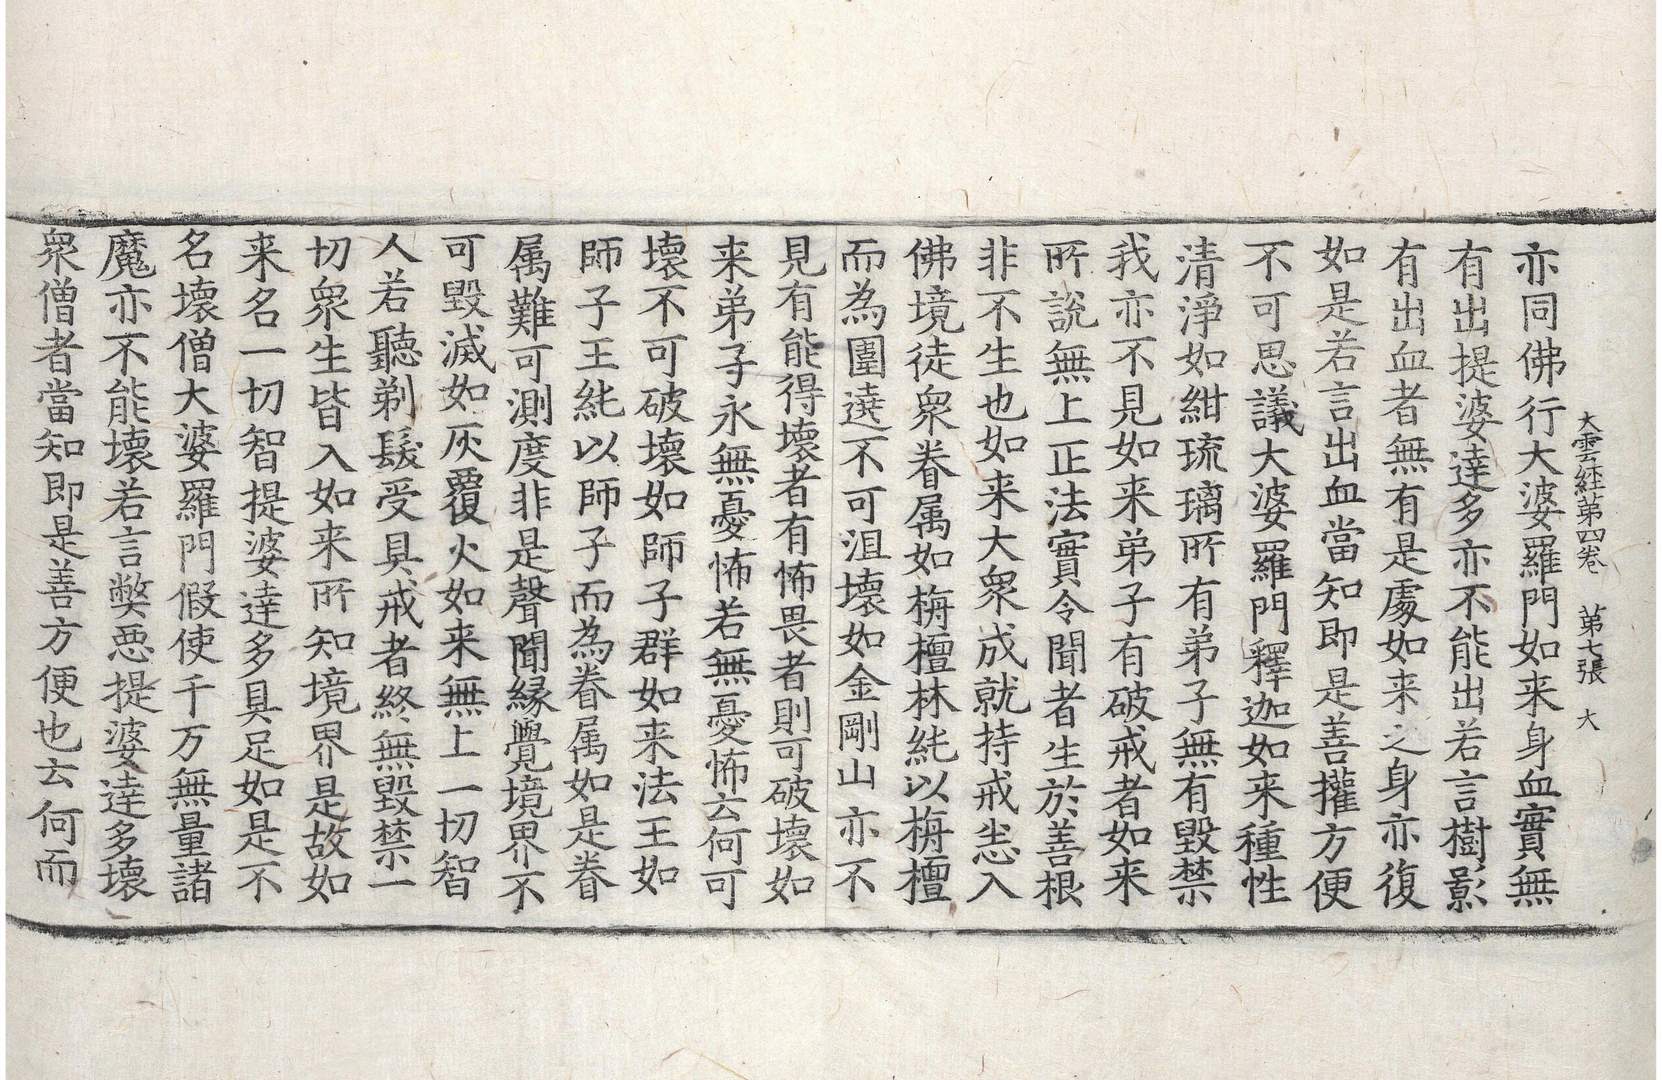 大雲経苐四卷　苐七張　大
亦同佛行大婆羅門如来身血實無
有出提婆達多亦不能出若言樹影
有出血者無有是處如来之身亦復
如是若言出血當知即是善權方便
不可思議大婆羅門釋迦如来種性
清淨如紺琉璃所有弟子無有毀禁
我亦不見如来弟子有破戒者如来
所說無上正法實令聞者生於善根
非不生也如来大衆成就持戒悉入
佛境徒衆眷属如栴檀林純以栴檀
而為圍遶不可沮壞如金剛山亦不
見有能得壞者有怖畏者則可破壞如
来弟子永無憂怖若無憂怖云何可
壞不可破壞如師子群如来法王如
師子王純以師子而為眷属如是眷
属難可測度非是聲聞緣覺境界不
可毀滅如灰覆火如来無上一切智
人若聽剃髮受具戒者終無毀禁一
切衆生皆入如来所知境界是故如
来名一切智提婆達多具足如是不
名壞僧大婆羅門假使千万無量諸
魔亦不能壞若言弊惡提婆達多壞
衆僧者當知即是善方便也云何而